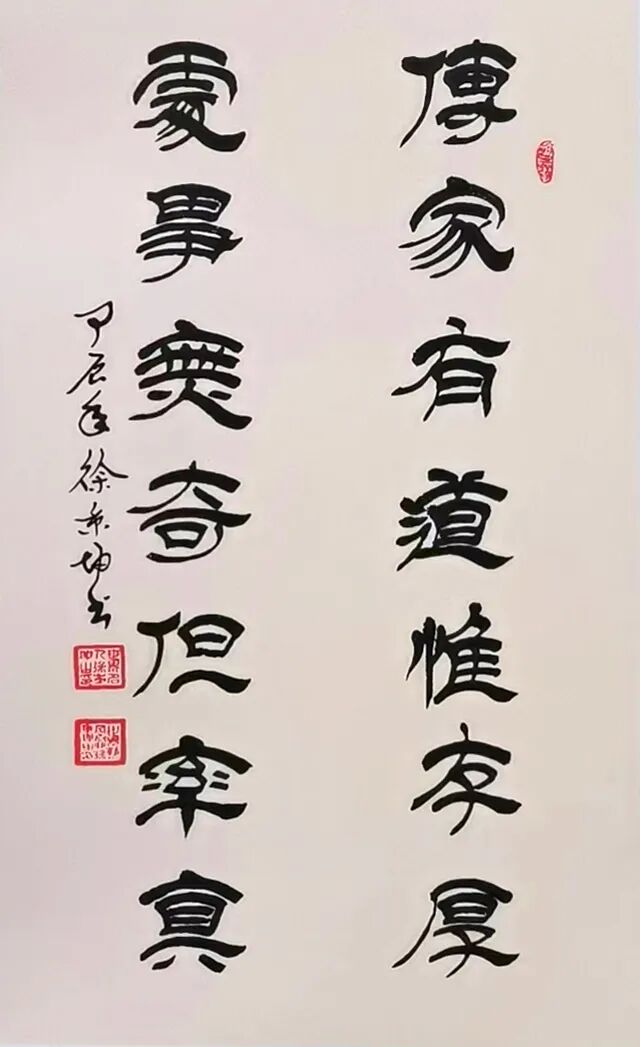 傳家有道惟存厚
處事無奇但率真
甲辰年徐秉坤书